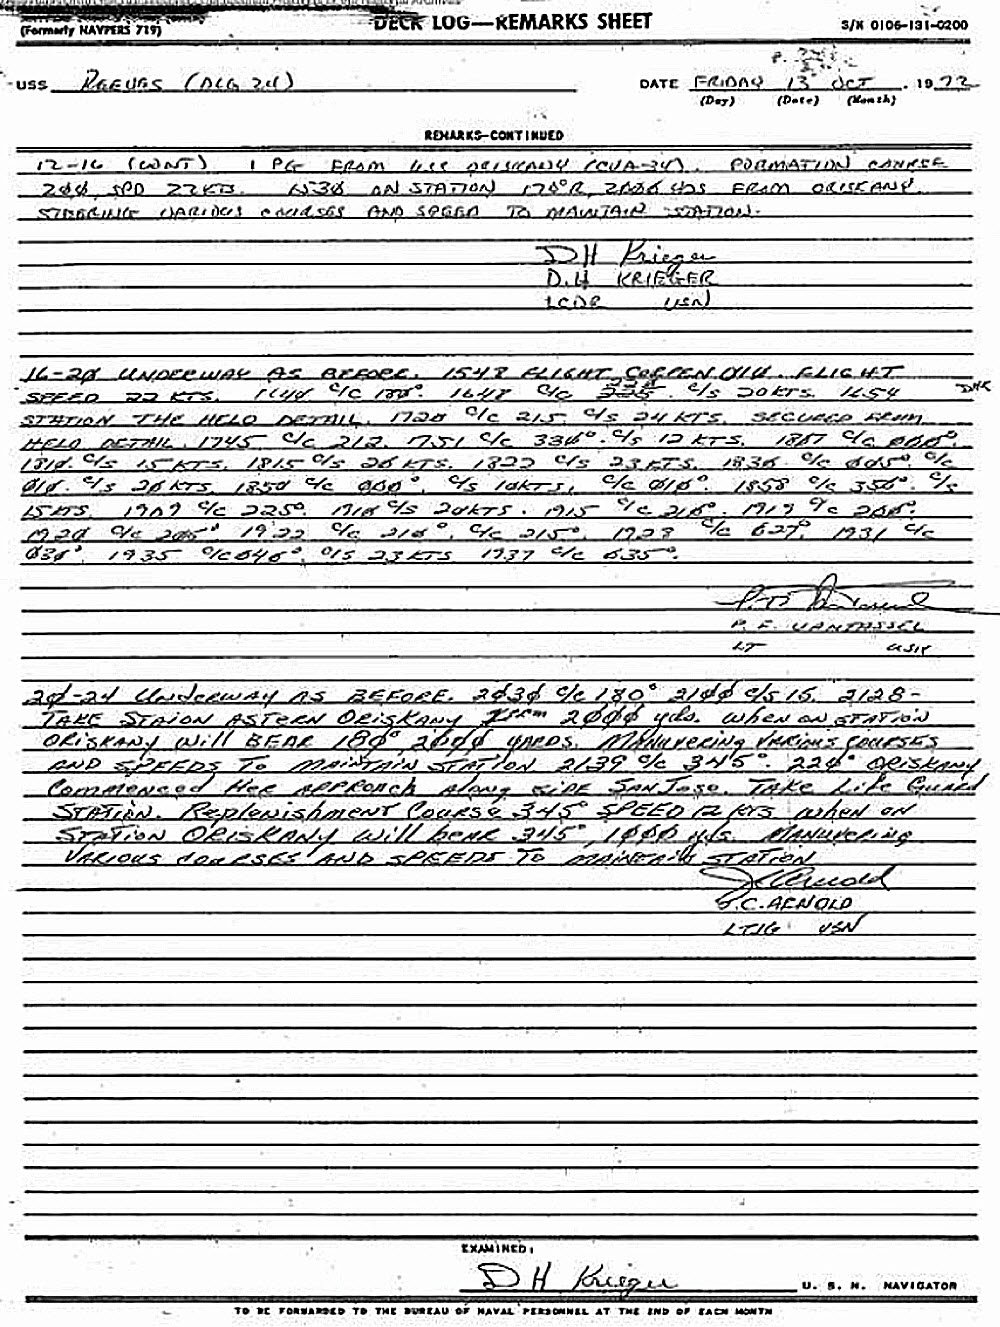 DECK LOG—REMARKS SHEET
(Formerly NAVPERS 719)
S/N 0106-131-0200
USS REEVES (DLG 24)
DATE FRIDAY 13 OCT , 1972
(Day) (Date) (Month)
REMARKS—CONTINUED
12-16 (CONT) 1 PG FROM USS ORISKANY (CVA-34). FORMATION COURSE
200, SPD 22 KTS. 1530 ON STATION 170°R, 2000 YDS FROM ORISKANY.
STEERING VARIOUS COURSES AND SPEED TO MAINTAIN STATION.
D H Krieger
D.H KRIEGER
LCDR USN
16-20 UNDERWAY AS BEFORE. 1548 FLIGHT FLIGHT
SPEED 22 KTS. 1644 C/C 180° 1648 C/C 225. C/S 20 KTS. 1654
DHK
STATION THE HELO DETAIL. 1720 C/C 215 C/S 24 KTS. SECURED FROM
HELO DETAIL. 1745 C/C 212. 1751 C/C 330°. C/S 12 KTS. 1807 C/C 000°.
1810. C/S 15 KTS. 1815 C/S 20 KTS. 1822 C/S 23 KTS. 1836 C/C 005°. C/C
010. C/S 20 KTS. 1850 C/C 000°. C/S 10KTS, C/C 010°. 1858 C/C 350°. C/S
15 KTS. 1909 C/C 225°. 1910 C/S 20KTS. 1915 C/C 210°. 1919 C/C 200°.
1920 C/C 205° 1922 C/C 210°, C/C 215°. 1928 C/C 027°. 1931 C/C
030°. 1935 C/C 040°, C/S 23 KTS 1937 C/C 035°.
P. F. VANTASSEL
LT USN
20-24 Underway AS BEFORE. 2030 C/C 180° 2100 C/S 15. 2128-
TAKE STAION ASTERN ORISKANY 2000 yds. when on STATION
ORISKANY will BEAR 180° 2000 YARDS. MANUVERING VARIOUS COURSES
AND SPEEDS TO MAINTAIN STATION 2139 C/C 345°. 220° ORISKANY
Commenced Her APPROACH Along SIDE SAN Jose. TAKE Life Guard
STATION. Replenishment Course 345° SPEED 12 KTS when on
STATION ORISKANY will bear 345°, 1000 yds. MANUVERING
VARIOUS COURSES AND SPEEDS TO MAINTAIN STATION
J C Arnold
J.C. ARNOLD
LTJG USN
EXAMINED:
D H Krieger U. S. N. NAVIGATOR
TO BE FORWARDED TO THE BUREAU OF NAVAL PERSONNEL AT THE END OF EACH MONTH